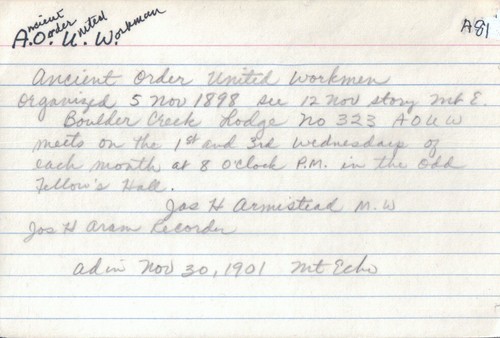 Ancient Order United Workman
A.O.U.W.
A81
Ancient Order United Workmen
Organized 5 Nov 1898 see 12 Nov story Mt E.
Boulder Creek Lodge No 323 A O U W
meets on the 1st and 3rd Wednesdays of
each month at 8 O'Clock P.M. in the Odd
Fellow's Hall.
Jas H Armistead M.W
Jos H Aram Recorder
ad in Nov 30, 1901 Mt Echo